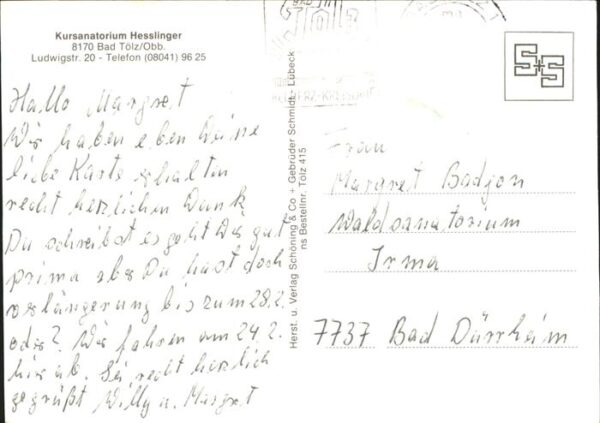 Kursanatorium Hesslinger
8170 Bad Tölz/Obb.
Ludwigstr. 20 - Telefon (08041) 96 25
Hallo Margret
Wir haben eben Deine
liebe Karte erhalten
recht herzlichen Dank.
Du schreibst es geht Dir gut
prima aber Du hast doch
verlängerung bis zum 28.2.
oder? Wir fahren am 24.2.
hier ab. Sei recht herzlich
gegrüßt Willy u. Margret
Herst. u. Verlag Schöning & Co + Gebrüder Schmidt, Lübeck
ns Bestellnr. Tölz 415
S+S
Frau
Margret Badjon
Waldsanatorium
Irma
7737 Bad Dürrheim